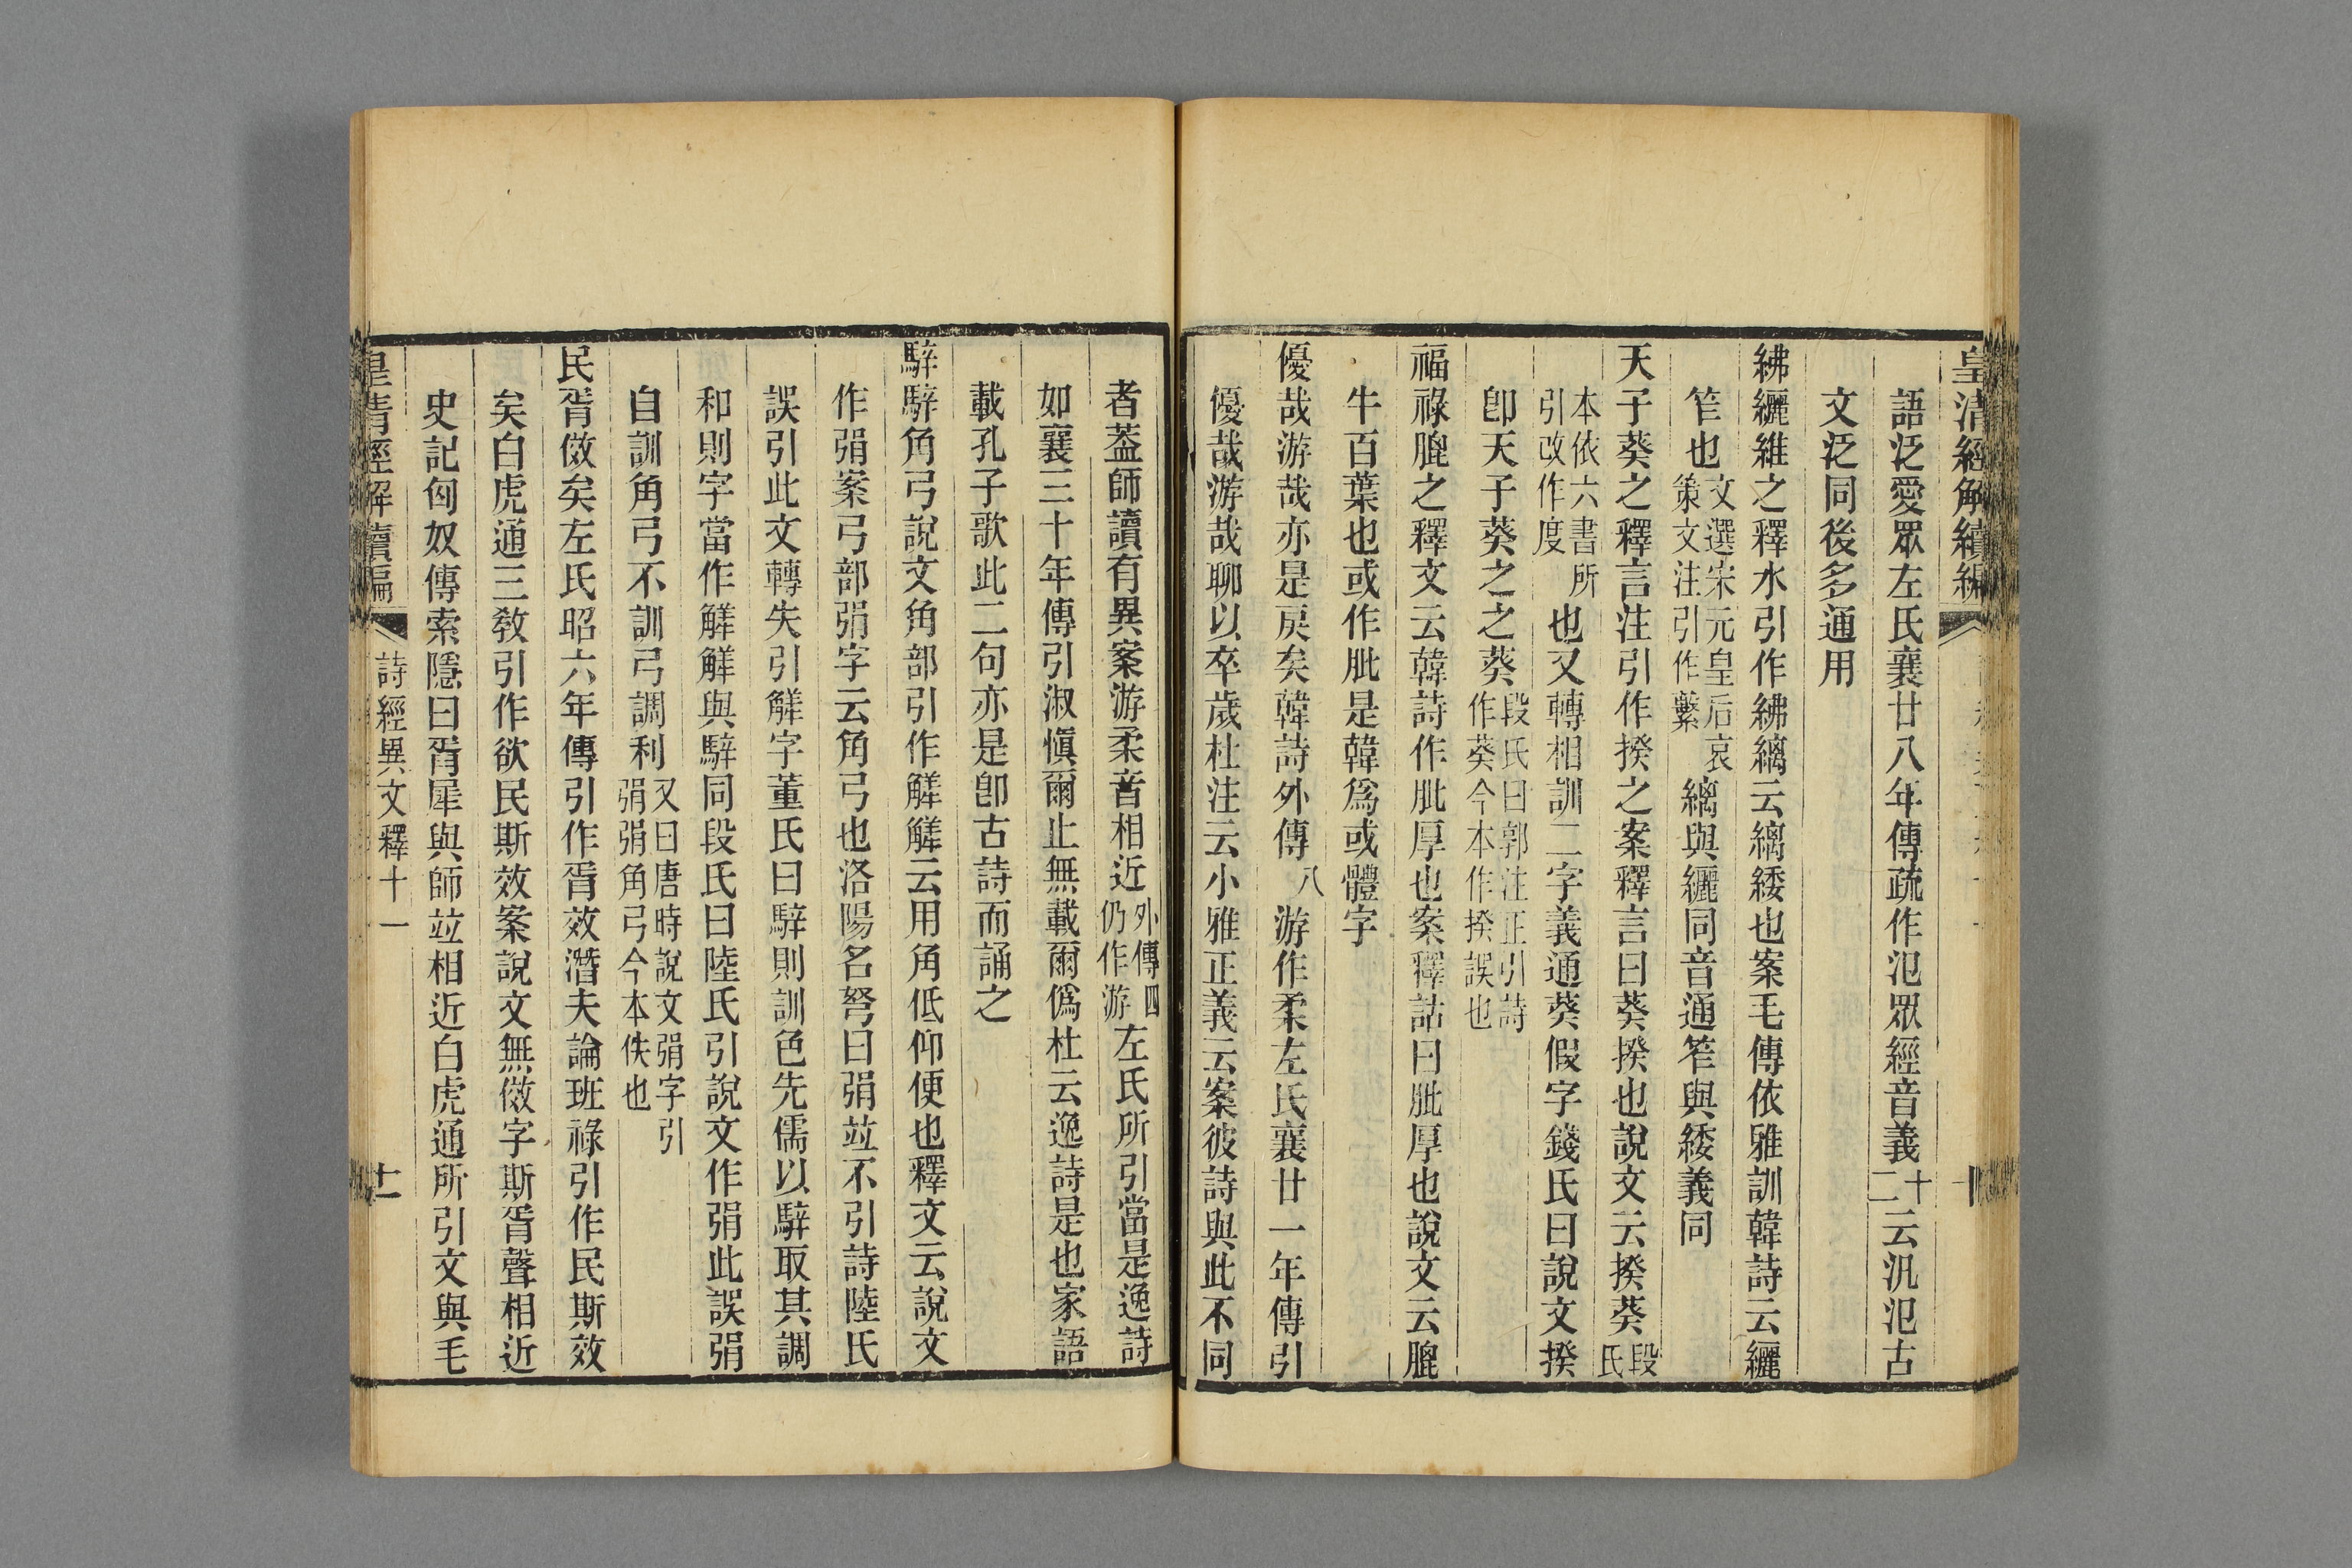 皇清經解續編
語泛愛眾左氏襄廿八年傳疏作氾眾經音義十二云汎氾古
文泛同後多通用
紼纚維之釋水引作紼縭云縭緌也案毛傳依雅訓韓詩云纚
笮也文選宋元皇后哀策文注引作繫縭與纚同音通笮與緌義同
天子葵之釋言注引作揆之案釋言曰葵揆也說文云揆葵段氏
本依六書所引改作度也又轉相訓二字義通葵假字錢氏曰說文揆
卽天子葵之之葵段氏曰郭注正引詩作葵今本作揆誤也
福祿膍之釋文云韓詩作肶厚也案釋詁曰肶厚也說文云膍
牛百葉也或作肶是韓爲或體字
優哉游哉亦是戾矣韓詩外傳八游作柔左氏襄廿一年傳引
優哉游哉聊以卒歲杜注云小雅正義云案彼詩與此不同
者葢師讀有異案游柔音相近外傳四仍作游左氏所引當是逸詩
如襄三十年傳引淑愼爾止無載爾僞杜云逸詩是也家語
載孔子歌此二句亦是卽古詩而誦之
騂騂角弓說文角部引作觲觲云用角低仰便也釋文云說文
作弲案弓部弲字云角弓也洛陽名弩曰弲竝不引詩陸氏
誤引此文轉失引觲字董氏曰騂則訓色先儒以騂取其調
和則字當作觲觲與騂同段氏曰陸氏引說文作弲此誤弲
自訓角弓不訓弓調利又曰唐時說文弲字引弲弲角弓今本佚也
民胥傚矣左氏昭六年傳引作胥效潛夫論班祿引作民斯效
矣白虎通三教引作欲民斯效案說文無傚字斯胥聲相近
史記匈奴傳索隱曰胥犀與師竝相近白虎通所引文與毛
皇清經解續編
詩經異文釋十一
十一